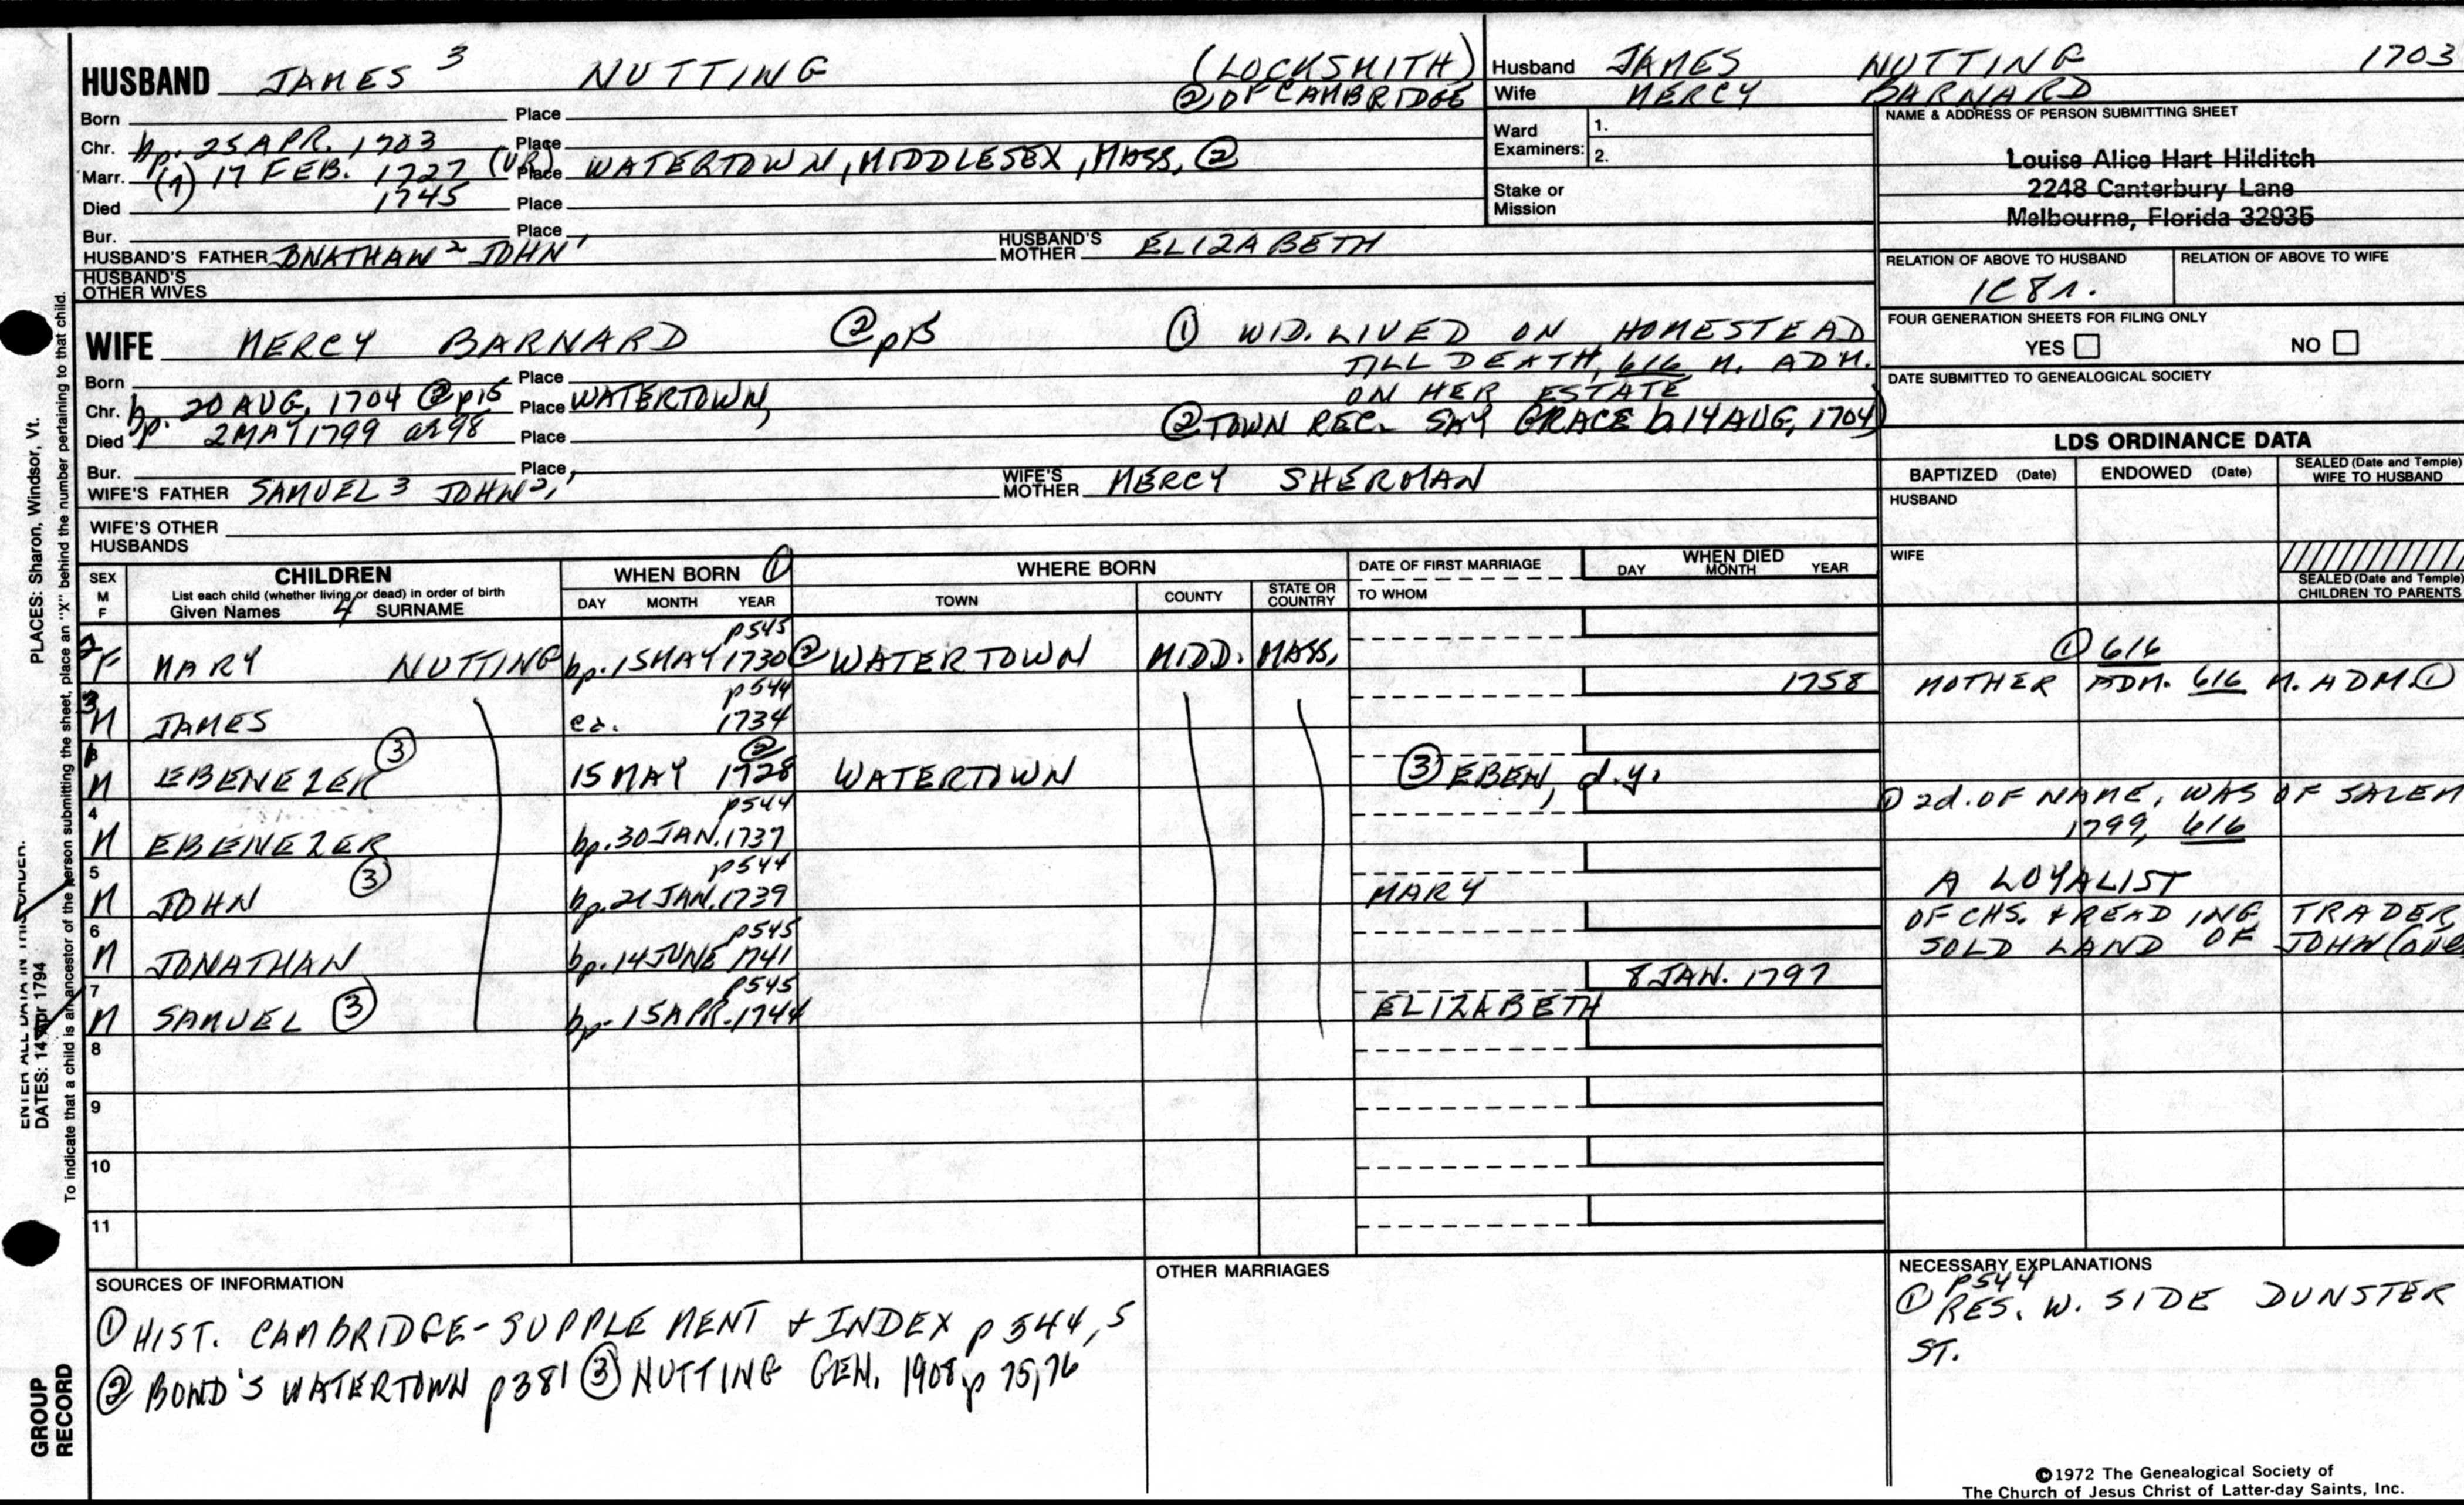 HUSBAND JAMES 3 NUTTING (LOCKSMITH)
② OF CAMBRIDGE
Born Place
Chr. bp. 25 APR. 1703 Place
Marr. (1) 17 FEB. 1727 (VR) Place WATERTOWN, MIDDLESEX, MASS, ②
Died 1745 Place
Bur. Place
HUSBAND'S FATHER JONATHAN 2 JOHN 1 HUSBAND'S MOTHER ELIZABETH
HUSBAND'S OTHER WIVES
Husband JAMES NUTTING 1703
Wife MERCY BARNARD
Ward Examiners: 1.
2.
Stake or Mission
NAME & ADDRESS OF PERSON SUBMITTING SHEET
Louise Alice Hart Hilditch
2248 Canterbury Lane
Melbourne, Florida 32935
RELATION OF ABOVE TO HUSBAND RELATION OF ABOVE TO WIFE
1C8r.
FOUR GENERATION SHEETS FOR FILING ONLY
YES NO
DATE SUBMITTED TO GENEALOGICAL SOCIETY
WIFE MERCY BARNARD ② p15 ① WID. LIVED ON HOMESTEAD
TILL DEATH, 616 M. ADM.
ON HER ESTATE
② TOWN REC. SAY GRACE b 14 AUG, 1704)
Born Place
Chr. bp. 20 AUG, 1704 ② p15 Place WATERTOWN,
Died 2 MAY 1799 ae 98 Place
Bur. Place
WIFE'S FATHER SAMUEL 3 JOHN 2, 1 WIFE'S MOTHER MERCY SHERMAN
WIFE'S OTHER HUSBANDS
LDS ORDINANCE DATA
BAPTIZED (Date) ENDOWED (Date) SEALED (Date and Temple) WIFE TO HUSBAND
HUSBAND
WIFE
SEALED (Date and Temple) CHILDREN TO PARENTS
SEX M F CHILDREN
List each child (whether living or dead) in order of birth
Given Names 4 SURNAME
WHEN BORN ①
DAY MONTH YEAR
WHERE BORN
TOWN COUNTY STATE OR COUNTRY
DATE OF FIRST MARRIAGE
TO WHOM
WHEN DIED
DAY MONTH YEAR
p545
2 F MARY NUTTING bp. 15 MAY 1730 ② WATERTOWN MIDD. MASS, ① 616
p544
1758 MOTHER ADM. 616 M. ADM. ①
3 M JAMES ca. 1734
②
M EBENEZER ③ 15 MAY 1728 WATERTOWN ③ EBEN, d.y.
p544
① 2d. OF NAME, WAS OF SALEM
1799, 616
4 M EBENEZER bp. 30 JAN. 1737
p544
5 M JOHN ③ bp. 21 JAN. 1739 MARY A LOYALIST
p545
6 M JONATHAN bp. 14 JUNE 1741
OF CHS. & READING, TRADER,
SOLD LAND OF JOHN
p545
8 JAN. 1797
7 M SAMUEL ③ bp. 15 APR. 1744 ELIZABETH
8
9
10
11
SOURCES OF INFORMATION
① HIST. CAMBRIDGE-SUPPLEMENT & INDEX p 544, 5
② BOND'S WATERTOWN p381 ③ NUTTING GEN. 1908 p 75, 76
OTHER MARRIAGES
NECESSARY EXPLANATIONS
p544
① RES. W. SIDE DUNSTER
ST.
©1972 The Genealogical Society of
The Church of Jesus Christ of Latter-day Saints, Inc.
ENTER ALL DATA IN THIS ORDER:
DATES: 14 Apr 1794 PLACES: Sharon, Windsor, Vt.
To indicate that a child is an ancestor of the person submitting the sheet, place an "X" behind the number pertaining to that child.
GROUP
RECORD